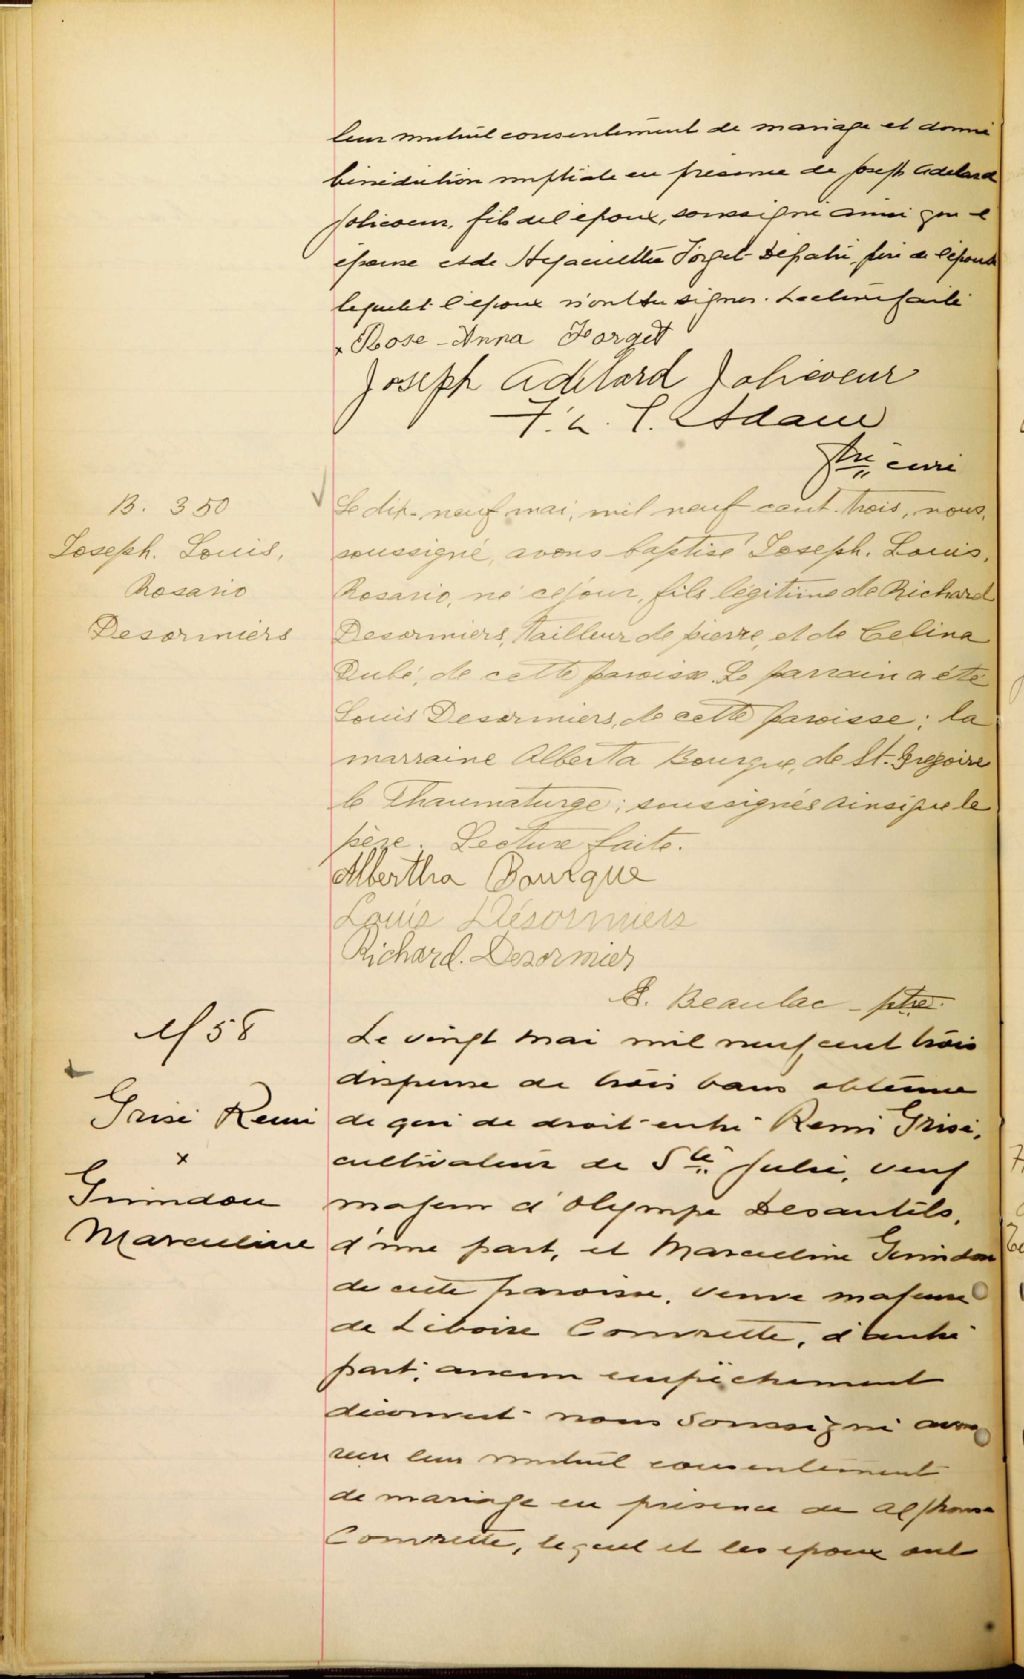 leur mutuel consentement de mariage et donné
bénédiction nuptiale en présence de Joseph Adelard
Jolicoeur, fils de l'époux, soussigné ainsi que l
épouse et de Hyacinthe Forget Dépatie, père de l'épouse
lequel et l'époux n'ont su signer. Lecture faite
x Rose-Anna Forget
Joseph Adélard Jolicoeur
F. L. T. Adam
Ptre curé
B. 350
Joseph. Louis.
Rosario
Desormiers
Le dix-neuf mai, mil neuf cent trois, nous,
soussigné, avons baptisé Joseph. Louis.
Rosario, né ce jour, fils légitime de Richard
Desormiers, tailleur de pierre, et de Celina
Dubé, de cette paroisse. Le parrain a été
Louis Desormiers, de cette paroisse; la
marraine Alberta Bourque, de St. Gregoire
le Thaumaturge; soussignés ainsi que le
père. Lecture faite.
Albertha Bourque
Louis Désormiers
Richard. Desormier
E. Beaulac - ptre.
M 58
Grisé Remi
x
Guindon
Marceline
Le vingt mai mil neuf cent trois
dispense de trois bans obtenue
de qui de droit entre Remi Grisé,
cultivateur de Ste Julie, veuf
majeur d'Olympe Desautels,
d'une part, et Marceline Guindon
de cette paroisse, veuve majeure
de Liboire Comtette, d'autre
part; aucun empêchement
découvert nous soussigné avons
reçu leur mutuel consentement
de mariage en présence de Alphonse
Comtette, lequel et les époux ont